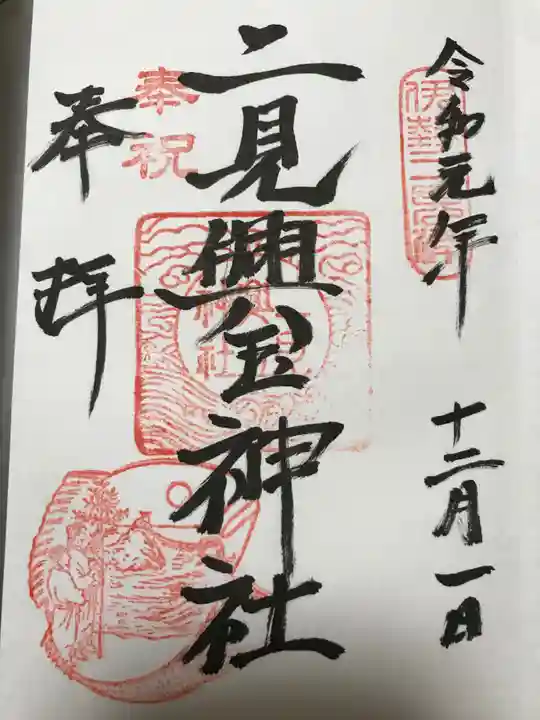 令和元年
十二月一日
伊勢二見浦
二見興玉神社
奉祝
奉拝